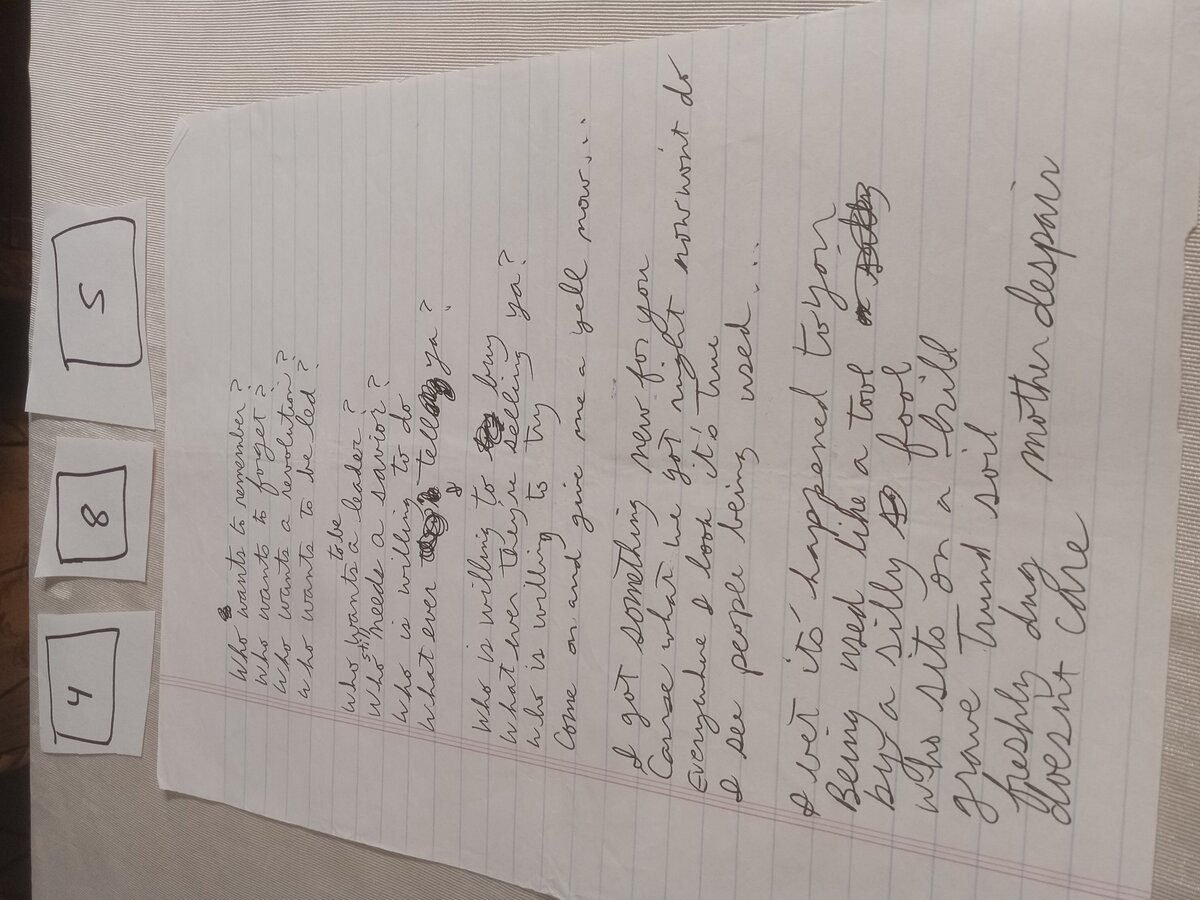 4
8
5
Who wants to remember?
Who wants to forget?
Who wants a revolution?
Who wants to be led?
Who wants to be a leader?
Who still needs a savior?
Who is willing to do
What ever I tell ya?
Who is willing to buy
What ever they're selling ya?
Who is willing to try
Come on and give me a yell now...
I got something new for you
Cause what we got right now wont do
Everywhere I look it's true
I see people being used...
I bet it's happened to you
Being used like a tool
by a silly fool
who sits on a hill
grave soil
freshly dug mother despair
doesn't care